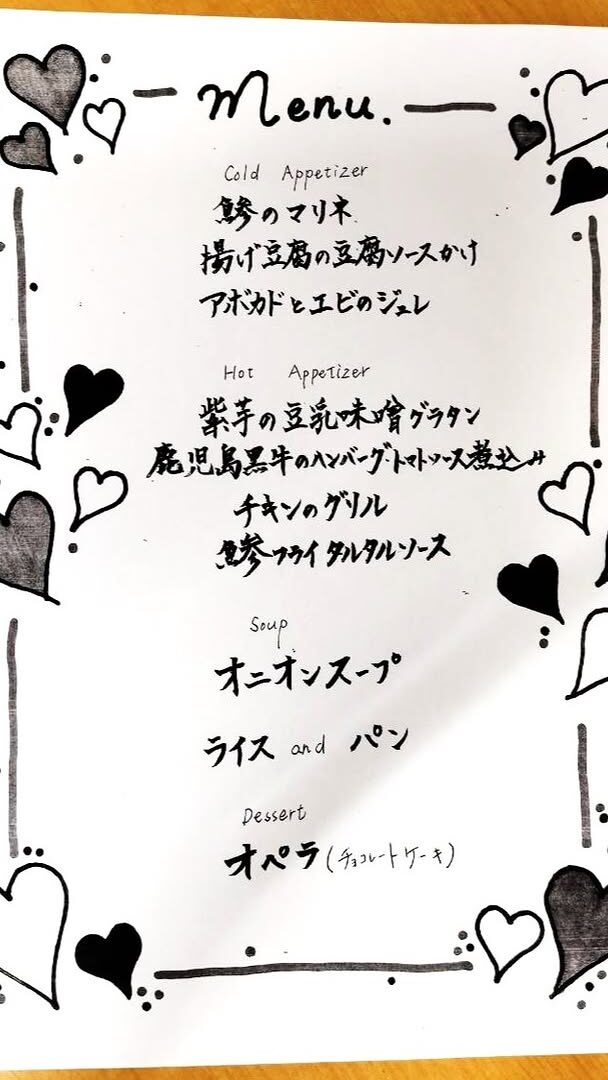 Menu.
Cold Appetizer
鯵のマリネ
揚げ豆腐の豆腐ソースかけ
アボカドとエビのジュレ
Hot Appetizer
紫芋の豆乳味噌グラタン
鹿児島黒牛のハンバーグ・トマトソース煮込み
チキンのグリル
鯵フライタルタルソース
Soup
オニオンスープ
ライス and パン
Dessert
オペラ(チョコレートケーキ)